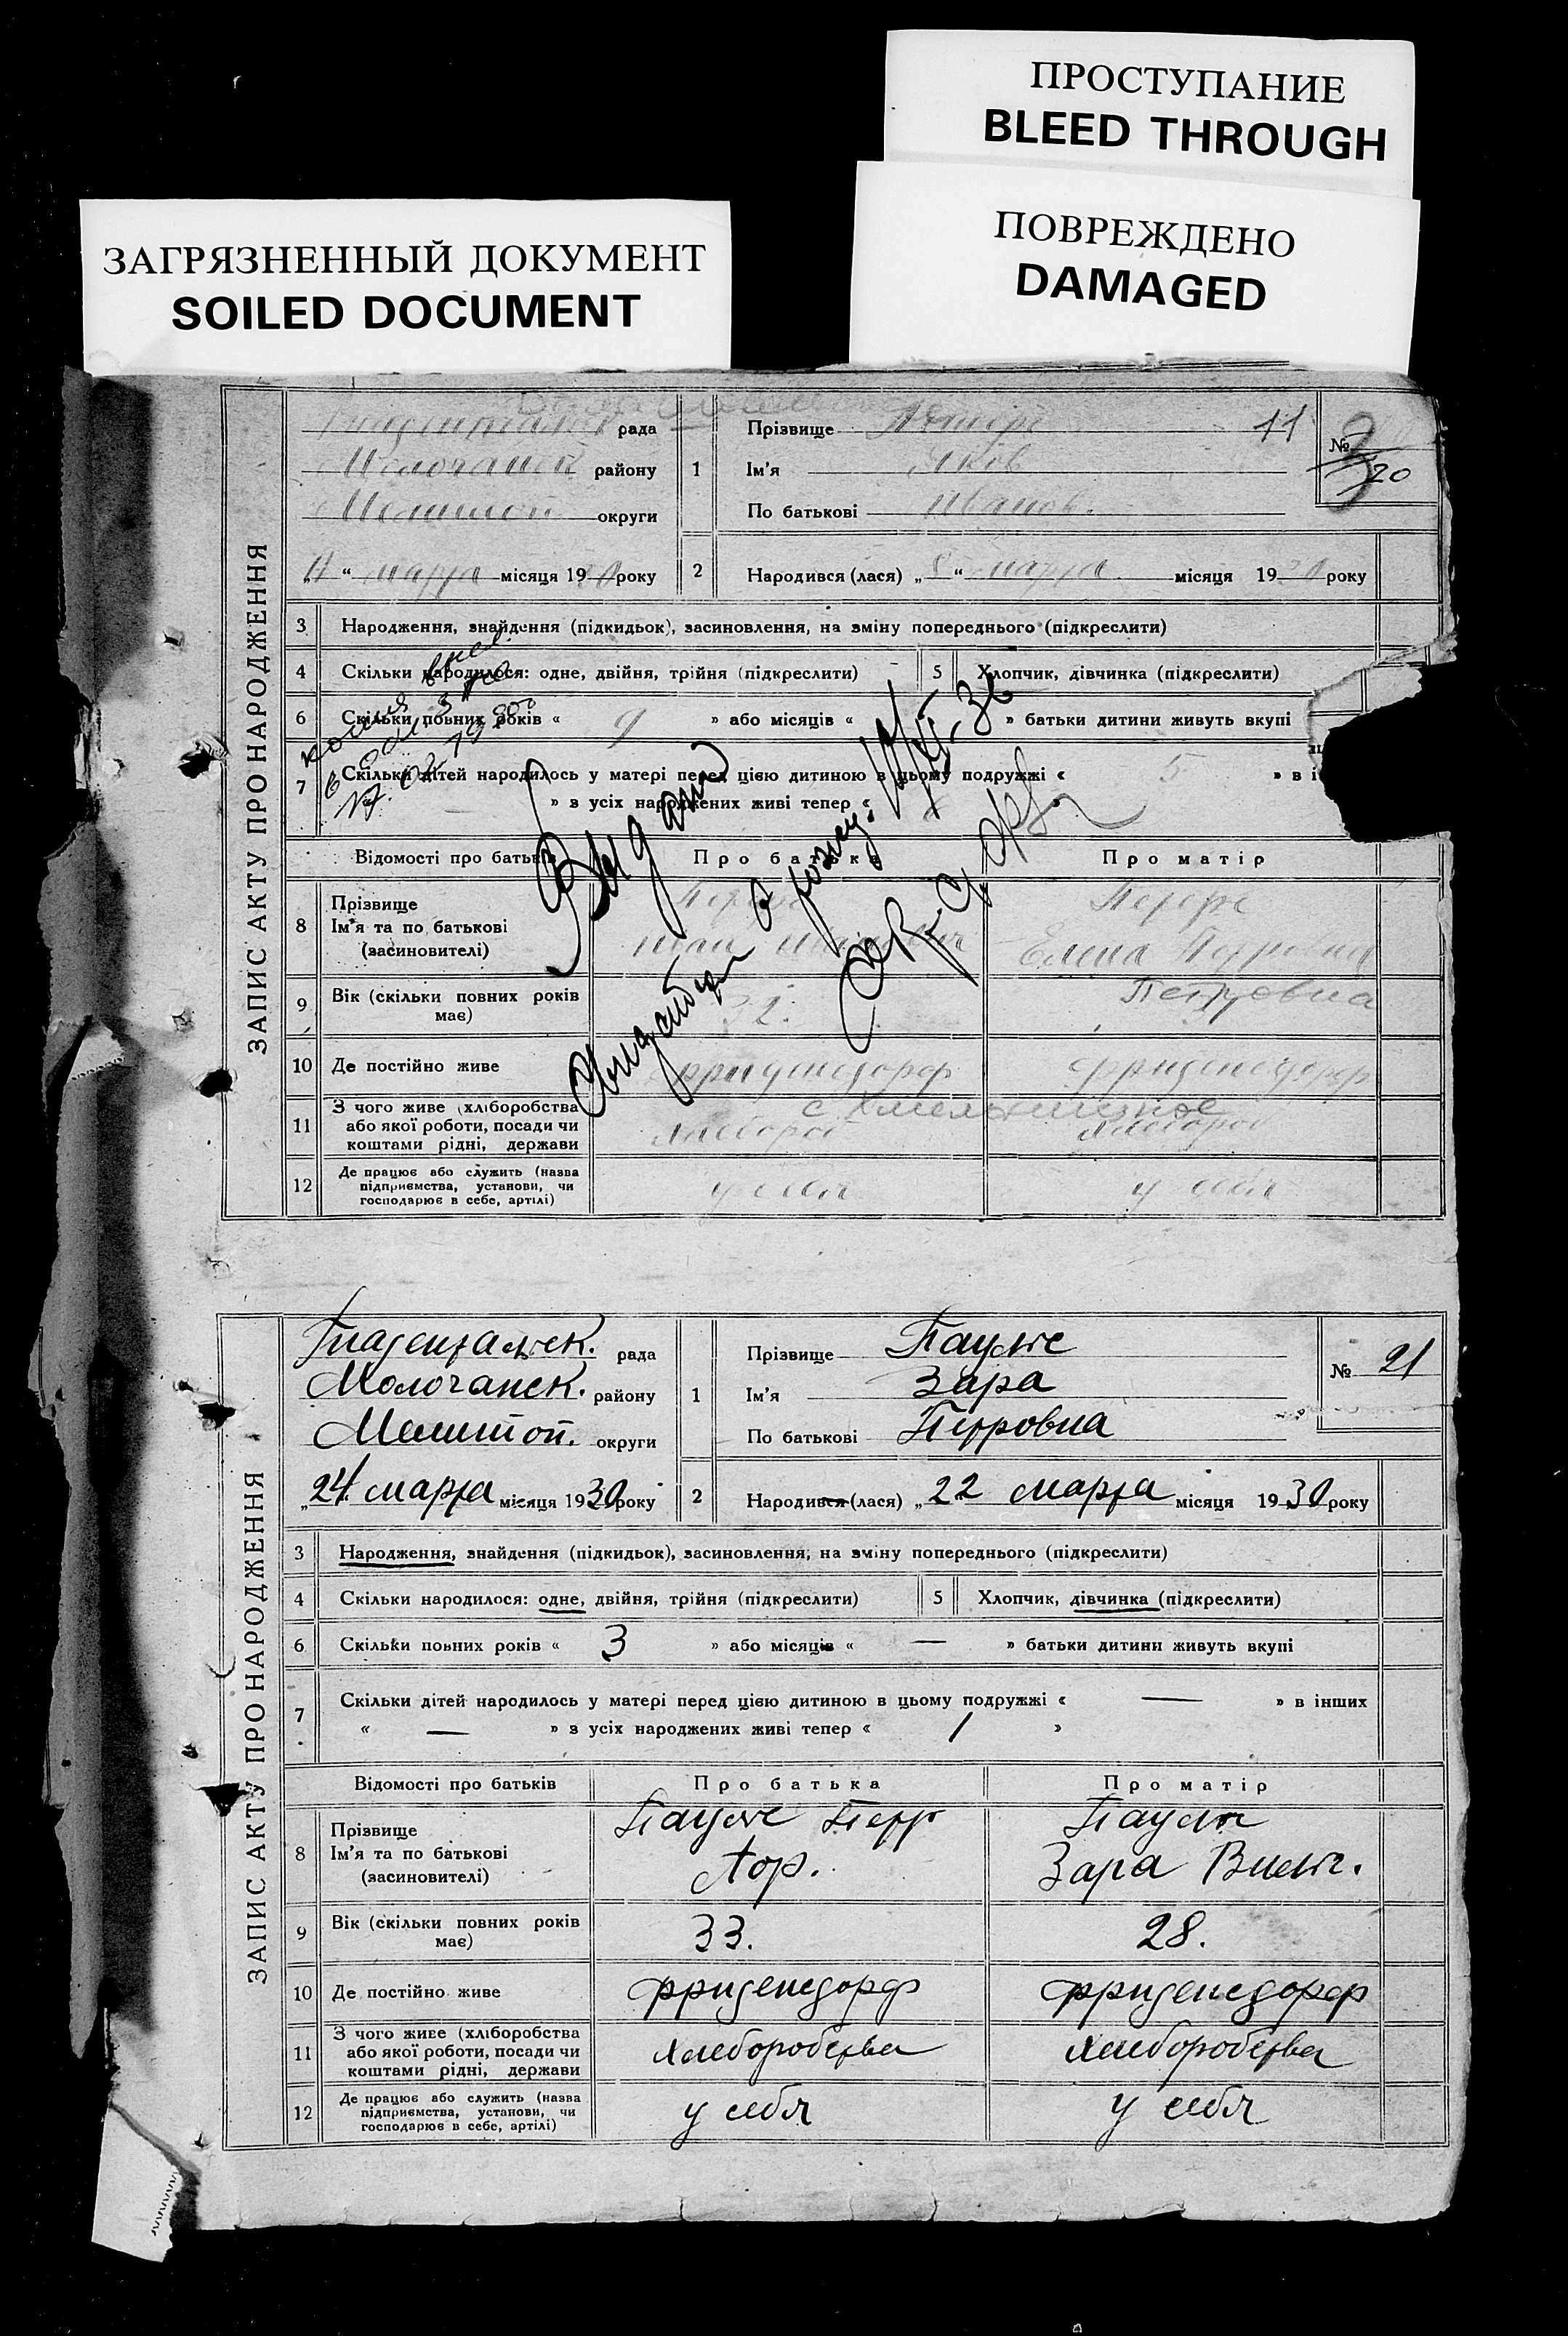 ПРОСТУПАНИЕ
BLEED THROUGH
ПОВРЕЖДЕНО
DAMAGED
ЗАГРЯЗНЕННЫЙ ДОКУМЕНТ
SOILED DOCUMENT
ЗАПИС АКТУ ПРО НАРОДЖЕННЯ
рада
району
округи
11 " марта місяця 1930 року
1
Прізвище
11
Ім'я Яков
По батькові Иванов.
№
20
2 Народився (лася) „ 8 " марта місяця 1930 року
3 Народження, знайдення (підкидьок), засиновлення, на зміну попереднього (підкреслити)
4 Скільки народилося: одне, двійня, трійня (підкреслити)
5 Хлопчик, дівчинка (підкреслити)
6 Скільки повних років « 9 » або місяців « » батьки дитини живуть вкупі
7 Скільки дітей народилось у матері перед цією дитиною в цьому подружжі « 5 » в і
» з усіх народжених живі тепер «
Выдано
Відомості про батьків Про батька Про матір
8 Прізвище
Ім'я та по батькові
(засиновителі)
Елена
Петровна
9 Вік (скільки повних років має) 32.
10 Де постійно живе Фриденсдорф Фриденсдорф
с. Хмельницкое
11 З чого живе (хліборобства або якої роботи, посади чи коштами рідні, держави Хлебороб Хлебороб
12 Де працює або служить (назва підприємства, установи, чи господарює в себе, артілі) у себя у себя
ЗАПИС АКТУ ПРО НАРОДЖЕННЯ
Гнадентальск. рада
Молочанск. району
Мелитоп. округи
„24" марта місяця 1930 року
1
Прізвище Паульс
Ім'я Зара
По батькові Петровна
№ 21
2 Народився (лася) „22" марта місяця 1930 року
3 Народження, знайдення (підкидьок), засиновлення, на зміну попереднього (підкреслити)
4 Скільки народилося: одне, двійня, трійня (підкреслити)
5 Хлопчик, дівчинка (підкреслити)
6 Скільки повних років « 3 » або місяців « — » батьки дитини живуть вкупі
7 Скільки дітей народилось у матері перед цією дитиною в цьому подружжі « — » в інших
« — » з усіх народжених живі тепер « 1 »
Відомості про батьків Про батька Про матір
8 Прізвище
Ім'я та по батькові
(засиновителі)
Паульс Петр
Паульс
Зара Вильг.
9 Вік (скільки повних років має) 33. 28.
10 Де постійно живе Фриденсдорф Фриденсдорф
11 З чого живе (хліборобства або якої роботи, посади чи коштами рідні, держави Хлеборобства Хлеборобства
12 Де працює або служить (назва підприємства, установи, чи господарює в себе, артілі) у себя у себя